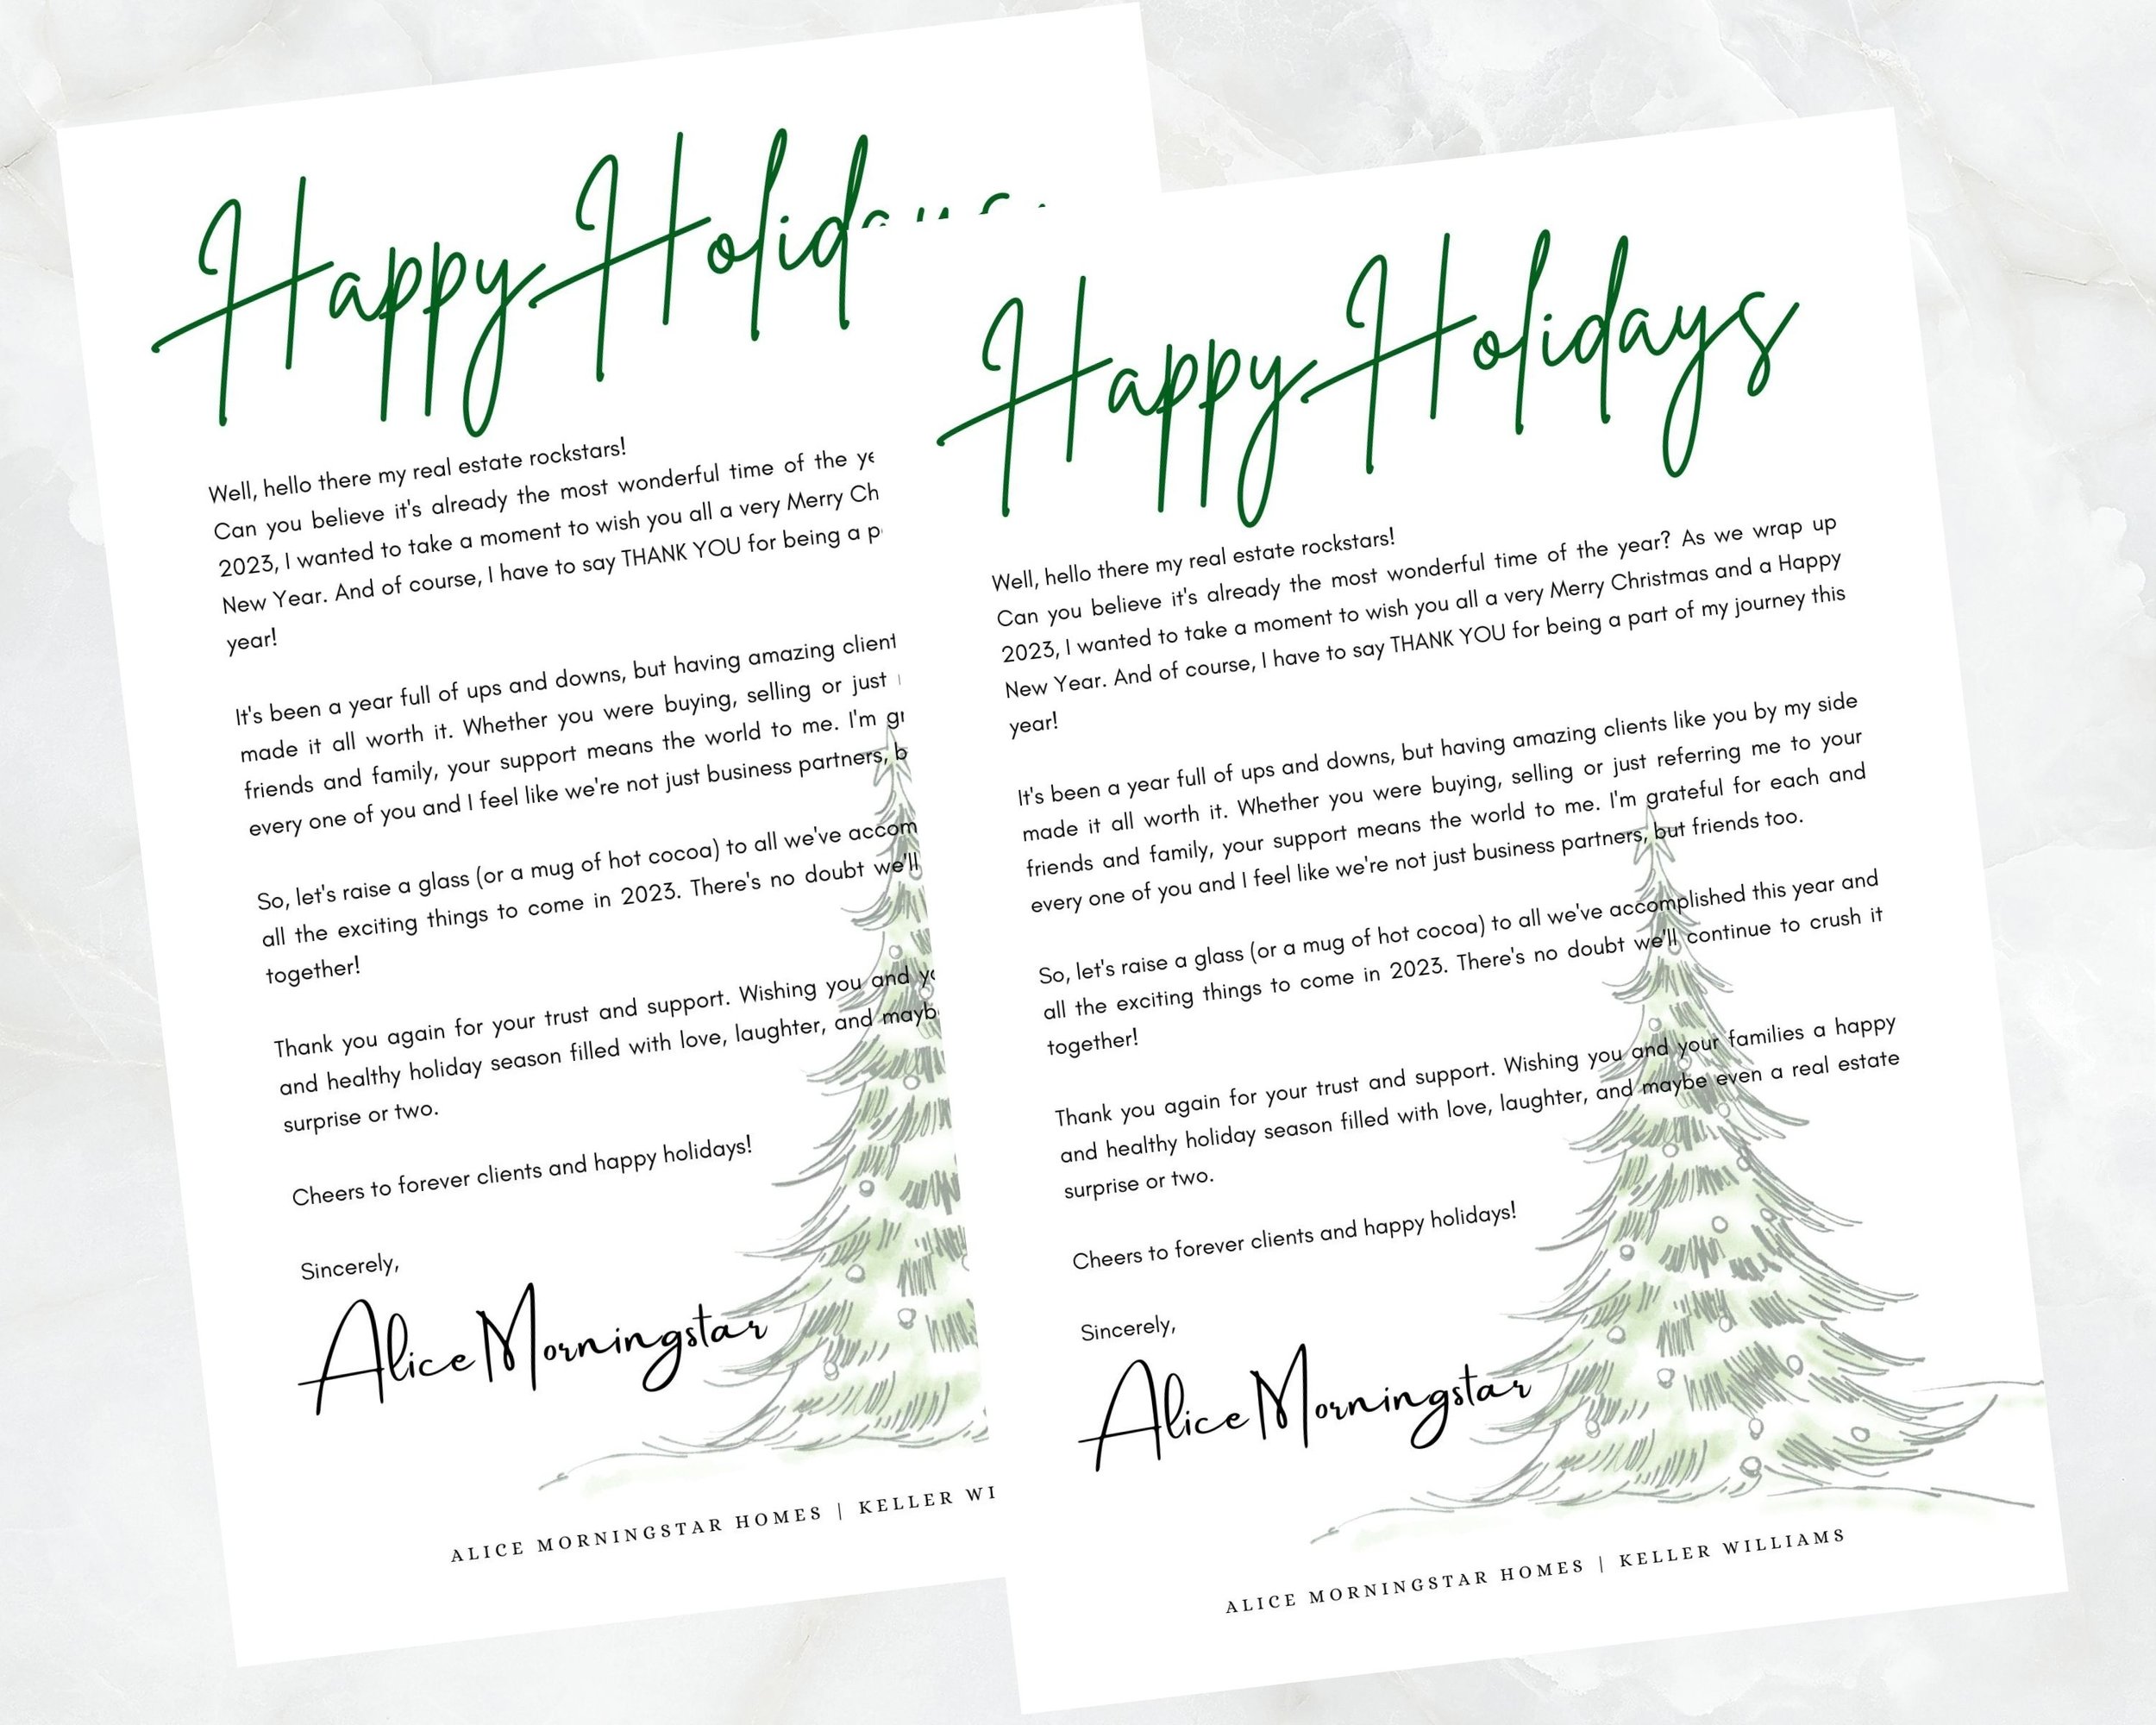 Happy Holid
Well, hello there my real estate rockstars!
Can you believe it's already the most wonderful time of the
2023, I wanted to take a moment to wish you all a very Merry Ch
New Year. And of course, I have to say THANK YOU for being a p
year!
It's been a year full of ups and downs, but having amazing client
made it all worth it. Whether you were buying, selling or just
friends and family, your support means the world to me. I'm gr
every one of you and I feel like we're not just business partners, b
So, let's raise a glass (or a mug of hot cocoa) to all we've accom
all the exciting things to come in 2023. There's no doubt we'll
together!
Thank you again for your trust and support. Wishing you and
and healthy holiday season filled with love, laughter, and mayb
surprise or two.
Cheers to forever clients and happy holidays!
Sincerely,
Alice Morningstar
ALICE MORNINGSTAR HOMES | KELLER WI
Happy Holidays
Well, hello there my real estate rockstars!
Can you believe it's already the most wonderful time of the year? As we wrap up
2023, I wanted to take a moment to wish you all a very Merry Christmas and a Happy
New Year. And of course, I have to say THANK YOU for being a part of my journey this
year!
It's been a year full of ups and downs, but having amazing clients like you by my side
made it all worth it. Whether you were buying, selling or just referring me to your
friends and family, your support means the world to me. I'm grateful for each and
every one of you and I feel like we're not just business partners, but friends too.
So, let's raise a glass (or a mug of hot cocoa) to all we've accomplished this year and
all the exciting things to come in 2023. There's no doubt we'll continue to crush it
together!
Thank you again for your trust and support. Wishing you and your families a happy
and healthy holiday season filled with love, laughter, and maybe even a real estate
surprise or two.
Cheers to forever clients and happy holidays!
Sincerely,
Alice Morningstar
ALICE MORNINGSTAR HOMES | KELLER WILLIAMS